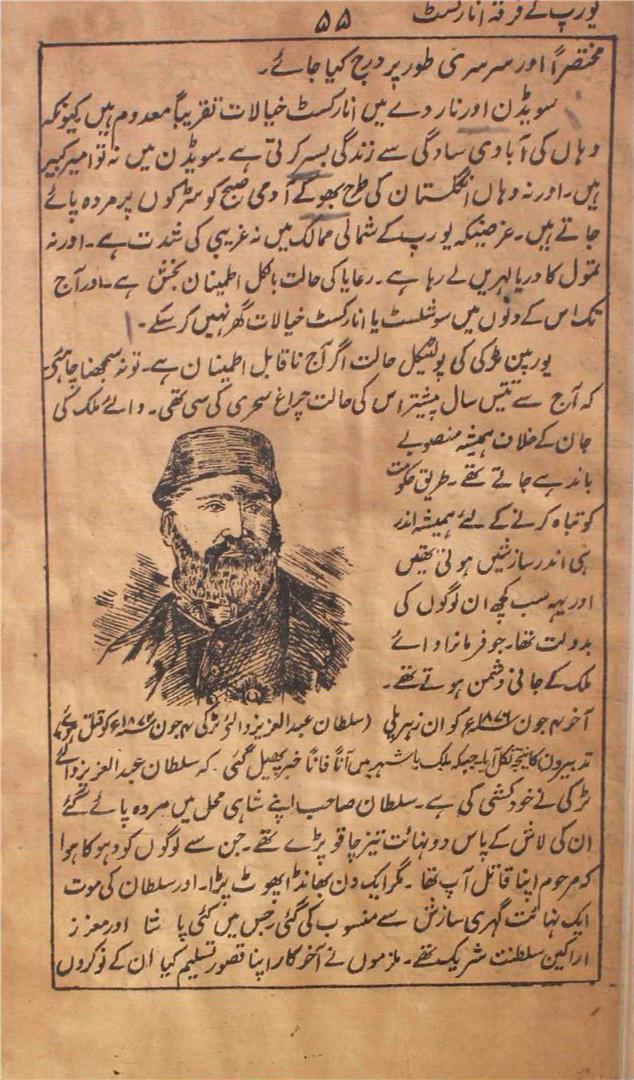 یورپ کے فرقہ انارکسٹ
۵۵
مختصراً اور سرسری طور پر درج کیا جائے۔
سویڈن اور ناردے میں انارکسٹ خیالات تقریباً معدوم ہیں کیونکہ
وہاں کی آبادی سادگی سے زندگی بسر کرتی ہے۔ سویڈن میں نہ تو امیر کبیر
ہیں۔ اور نہ وہاں انگلستان کی طرح بھوکے آدمی صبح کو سڑکوں پر مردہ پائے
جاتے ہیں۔ غرضیکہ یورپ کے شمالی ممالک میں نہ غریبی کی شدت ہے۔ اور نہ
تمول کا دریا لہریں لے رہا ہے۔ رعایا کی حالت بالکل اطمینان بخش ہے۔ اور آج
تک اس کے دلوں میں سوشلسٹ یا انارکسٹ خیالات گھر نہیں کر سکے۔
یورپین ٹرکی کی پولٹیکل حالت اگر آج ناقابل اطمینان ہے۔ تو نہ سمجھنا چاہئے
کہ آج سے تیس سال پیشتر اس کی حالت چراغ سحری کی سی تھی۔ والئے ملک کی
جان کے خلاف ہمیشہ منصوبے
باندھے جاتے تھے۔ طریق حکومت
کو تباہ کرنے کے لئے ہمیشہ اندر
ہی اندر سازشیں ہوتی تھیں
اور یہہ سب کچھ ان لوگوں کی
بدولت تھا۔ جو فرمانروائے
ملک کے جانی دشمن ہوتے تھے۔
آخر ۴ جون ۱۸۷۶ء کو ان زہریلی
(سلطان عبدالعزیز والئ ٹرکی ۴ جون ۱۸۷۶ء کو قتل ہوئے)
تدبیروں کا نتیجہ نکل آیا۔ جبکہ ملک یا شہر میں آناً فاناً خبر پھیل گئی کہ سلطان عبدالعزیز والئے
ٹرکی نے خودکشی کی ہے۔ سلطان صاحب اپنے شاہی محل میں مردہ پائے گئے
ان کی لاش کے پاس دو نہائت تیز چاقو پڑے تھے۔ جن سے لوگوں کو دہوکا ہوا
کہ مرحوم اپنا قاتل آپ تھا۔ مگر ایک دن بھانڈا پھوٹ پڑا۔ اور سلطان کی موت
ایک نہائت گہری سازش سے منسوب کی گئی جس میں کئی پاشا اور معزز
اراکین سلطنت شریک تھے۔ ملزموں نے آخرکار اپنا قصور تسلیم کیا ان کے نوکروں